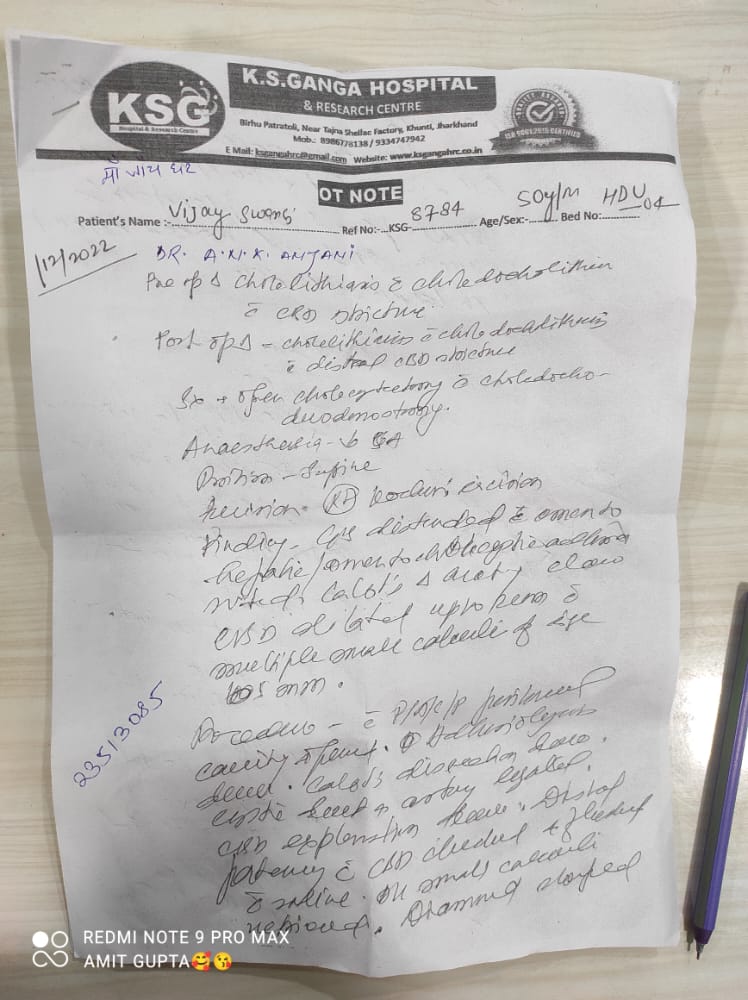 KSG
Hospital & Research Centre
K.S.GANGA HOSPITAL
& RESEARCH CENTRE
Birhu Patratoli, Near Tajna Shellac Factory, Khunti, Jharkhand
Mob.: 8986778138 / 9334747942
E Mail: ksgangahrc@gmail.com Website: www.ksgangahrc.co.in
ISO 9001:2015 CERTIFIED
OT NOTE
Patient's Name :- Vijay Ref No:- KSG- 8784 Age/Sex:- 50y/M Bed No: HDU 04
/12/2022
DR. A.N.K. ANJANI
Pre op Δ cholelithiasis c̄
c̄ CBD stricture
Post op Δ - cholelithiasis c̄ choledocholithiasis
c̄ distal CBD stricture
Sx → open c̄ choledocho-
Anaesthesia → GA
Position - Supine
Incision - (Rt)
Finding - GB distended c̄ omento
hepatic / adhesion
Calot's Δ
CBD dilated upto c̄
multiple small calculi of size
5 mm.
Procedure - c̄ peritoneal
cavity opened. Adhesiolysis
done. Calot's dissection done.
cystic duct & artery ligated.
CBD exploration done. Distal
patency CBD checked & flushed
c̄ saline. small calculi
removed. Diamond shaped
23513085
REDMI NOTE 9 PRO MAX
AMIT GUPTA🥰😘